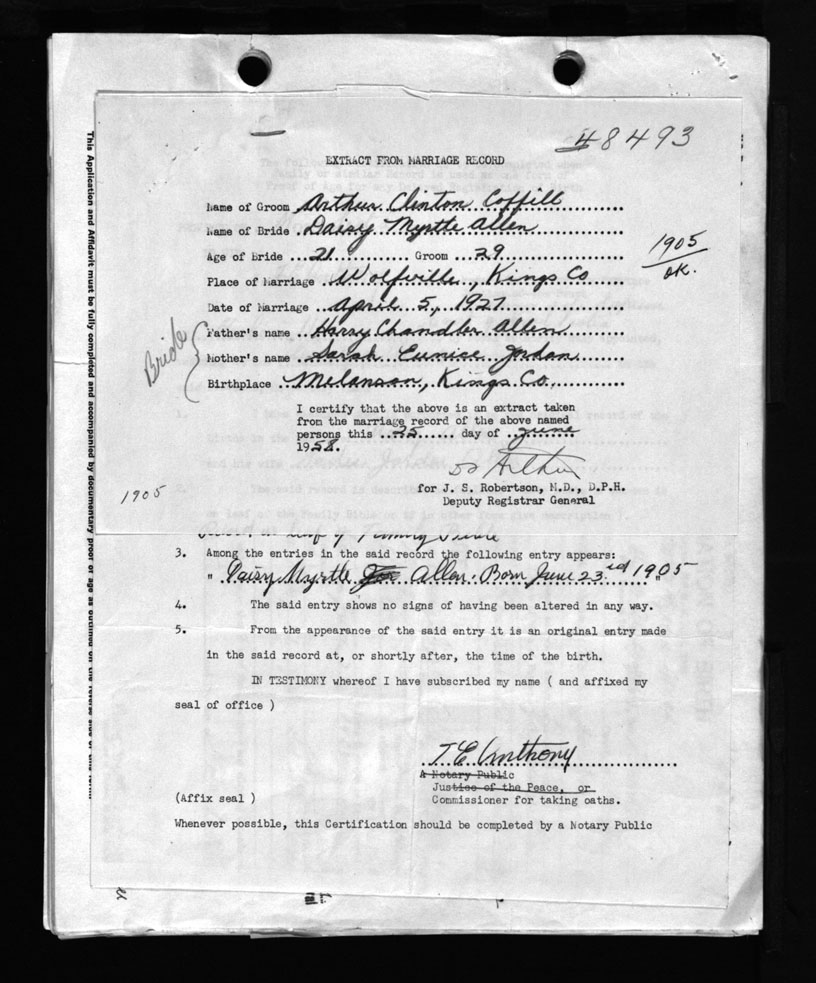 48493
EXTRACT FROM MARRIAGE RECORD
Name of Groom Arthur Clinton Coffill
Name of Bride Daisy Myrtle Allen
Age of Bride 21 Groom 29
1905
ok.
Place of Marriage Wolfville, Kings Co
Date of Marriage April 5, 1927
Bride
Father's name Harry Chandler Allen
Mother's name Sarah Eunice Jordan
Birthplace Melanson, Kings Co.
I certify that the above is an extract taken
from the marriage record of the above named
persons this 25 day of June
1958.
for J. S. Robertson, M.D., D.P.H.
Deputy Registrar General
1905
3. Among the entries in the said record the following entry appears:
" Daisy Myrtle Allen. Born June 23rd 1905 "
4. The said entry shows no signs of having been altered in any way.
5. From the appearance of the said entry it is an original entry made
in the said record at, or shortly after, the time of the birth.
IN TESTIMONY whereof I have subscribed my name ( and affixed my
seal of office )
T E Anthony
A Notary Public
Justice of the Peace, or
(Affix seal ) Commissioner for taking oaths.
Whenever possible, this Certification should be completed by a Notary Public
This Application and Affidavit must be fully completed and accompanied by documentary proof of age as outlined on the reverse side of this form